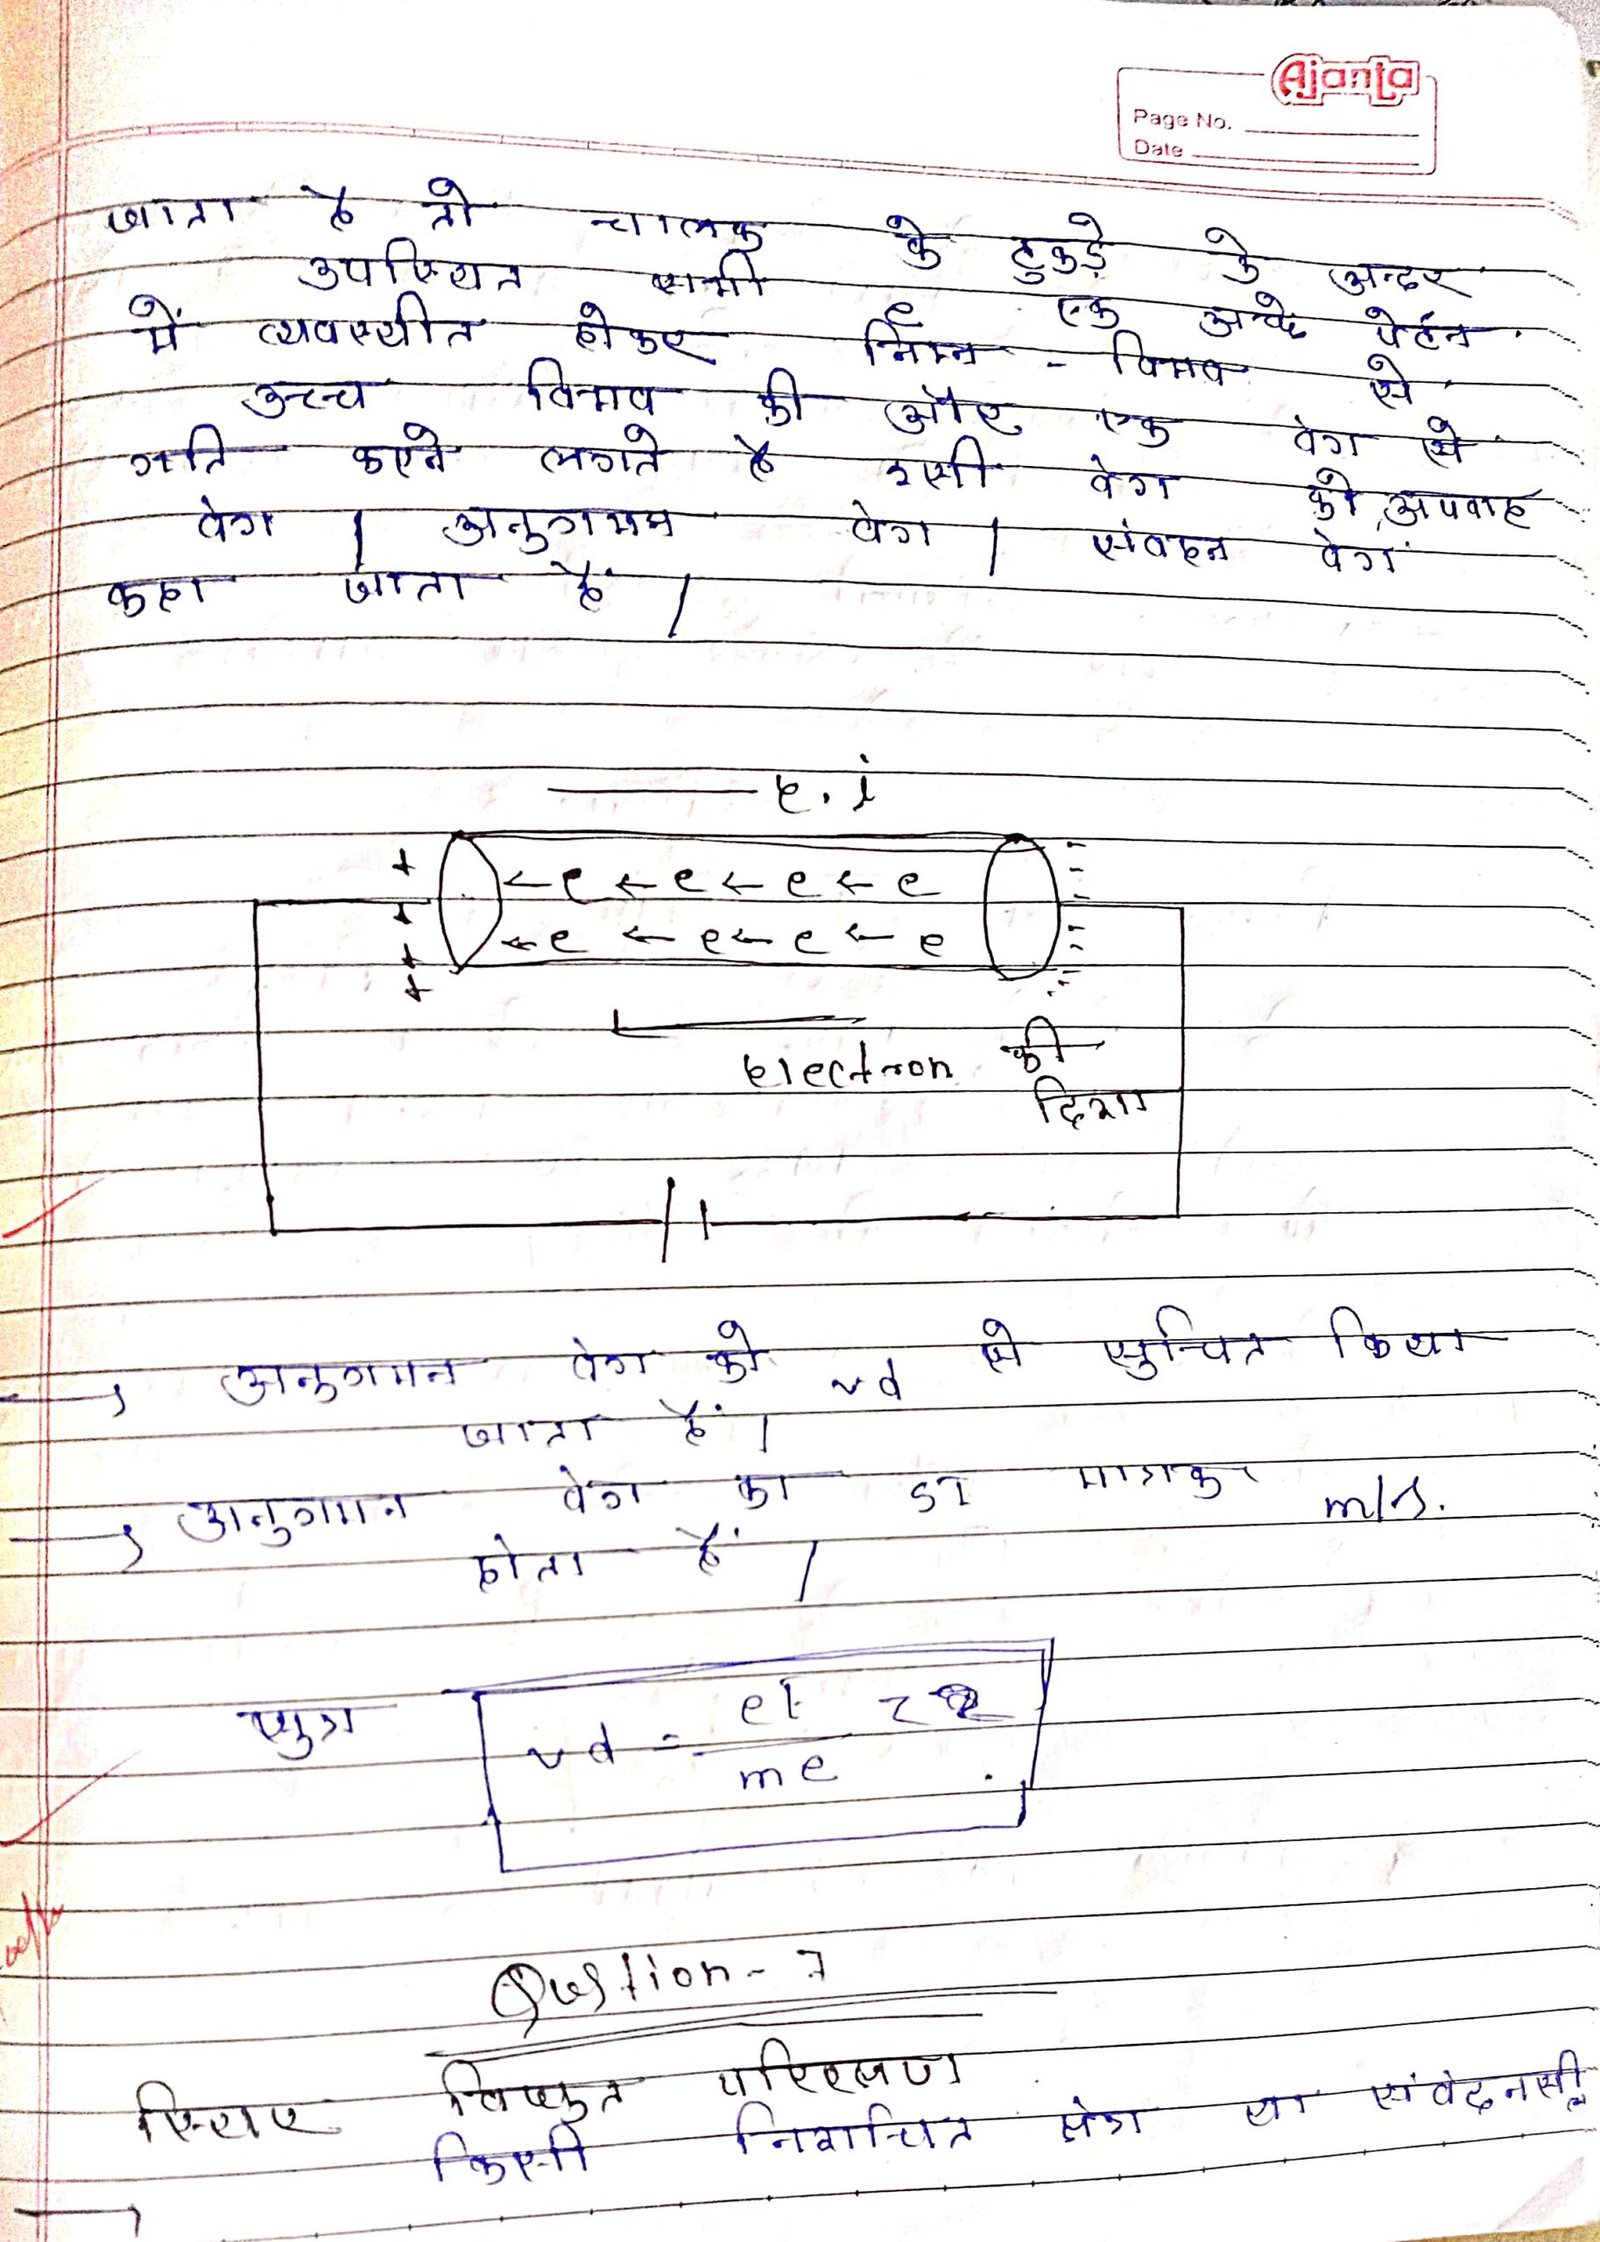 Ajanta
Page No.
Date
जाता है तो चालक के टुकड़े के अन्दर
उपस्थित सभी e एक अच्छे पेर्टन
में व्यवस्थीत होकर निम्न - विभव से
उच्च विभव की और एक वेग से
गति करने लगते है इसी वेग को अपवाह
वेग | अनुगमम वेग | संवहन वेग
कहा जाता हैं |
e. i
+ ← e ← e ← e ← e
+ ← e ← e ← e ← e
+
+
electron की
दिशा
→ अनुगमन वेग को vd से सुचित किया
जाता हैं |
→ अनुगमन वेग का SI मात्रक m/s.
होता हैं |
सुत्र vd = eE τ
me
Question - 7
स्थिर विधुत परिरक्षण
→ किसी निश्चित क्षेत्र या